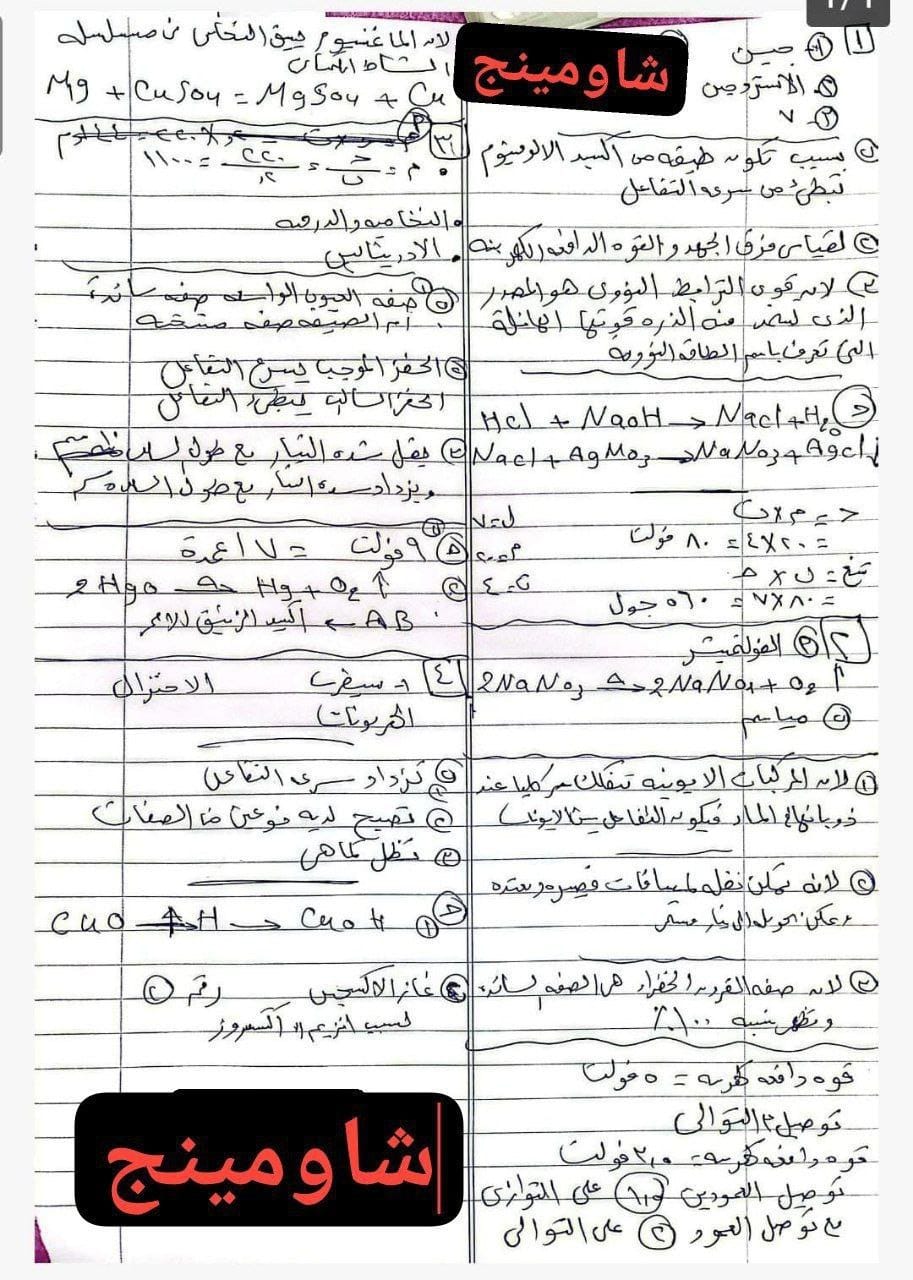 1/1
شاومينج
١ جين
الاستروجين
٧
بسبب تكون طبقه من اكسيد الالومنيوم
تبطئ من سرعه التفاعل
لقياس فرق الجهد و القوه الدافعه الكهربيه
لانه قوى الترابط النووى هو المصدر
الذى تستمد منه الذره قوتها الهائلة
التى تعرف باسم الطاقه النوويه
Hcl + NaoH → Nacl + H2o
Nacl + AgNo3 → NaNo3 + Agcl
ج = م × ت
= ٢٠ × ٤ = ٨٠ فولت
ل = ٧
م = ٢٠
ت = ٤
= ٨٠ × ٧ = ٥٦٠ جول
٢ الفولتميتر
2NaNo3 →Δ 2NaNo2 + O2 ↑
مياسم
١ لان المركبات الايونيه تتفكك كليا عند
ذوبانها فى الماء فيكون التفاعل بين الايونات
٢ لانه يمكن نقله لمسافات قصيره وبعيده
ويمكن تحويله الى تيار مستمر
٣ لان صفه القرون الخضراء هى الصفه السائده
وتظهر بنسبه ١٠٠٪
قوه دافعه كهربيه = ٥ فولت
توصل ٣ التوالى
قوه دافعه كهربيه = ٣,٥ فولت
توصيل العمودين ١,٢ على التوازى
مع توصل العمود ٣ على التوالى
لان الماغنسيوم يسبق النحاس فى متسلسله
النشاط الكيميائى
Mg + CuSo4 = MgSo4 + Cu
٣
م = ج/ت = ٢٢٠/٠,٢ = ١١٠٠
النخاميه والدرقيه
الادرينالين
صفه العيون الواسعه صفه سائدة
أم الضيقه صفه متنحيه
الحفز الموجب يسرع التفاعل
الحفز السالب يبطئ التفاعل
٣ يقل شده التيار مع طول السلك
ويزداد شده التيار مع طول السلك كم
٩ فولت = ٧ اعمدة
2Hgo →Δ Hg + O2 ↑
AB ← اكسيد الزئبق الاحمر
٤ ١- سيفرت الاختزال
الهرمونات
تزداد سرعه التفاعل
٢ تصبح لديه نوعين من الصفات
٣ تظل كما هى
CuO + H → CuoH
غاز الاكسجين رقم ٢
بسبب انزيم الاكسيديز
شاومينج